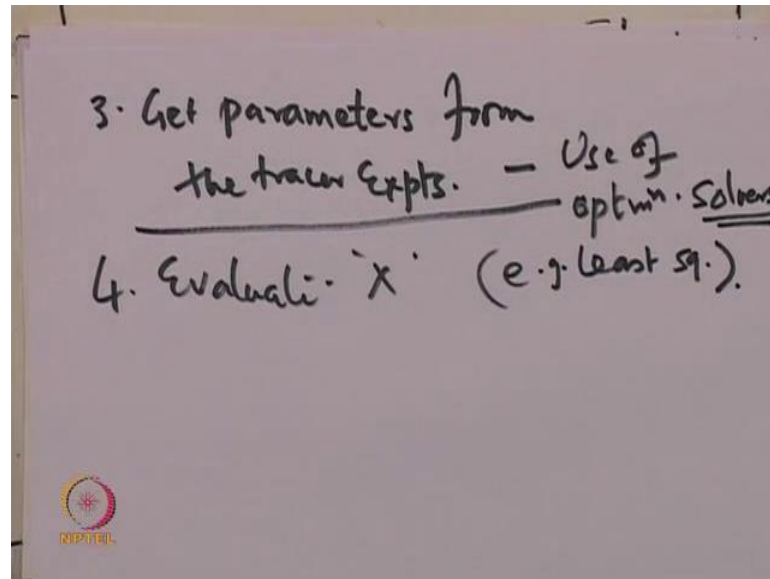 3. Get parameters form
the tracer Expts. - Use of
optmn. Solvers
4. Evaluati. 'X' (e.g. Least sq.).
NPTEL